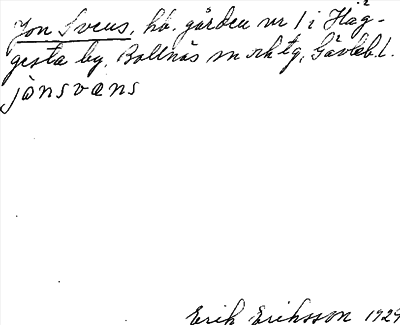 Jon Svens, hb. gården nr 1 i Häg-
gesta by, Bollnäs sn och tg, Gävleb.l.
jònsvæns
Erik Eriksson 1929